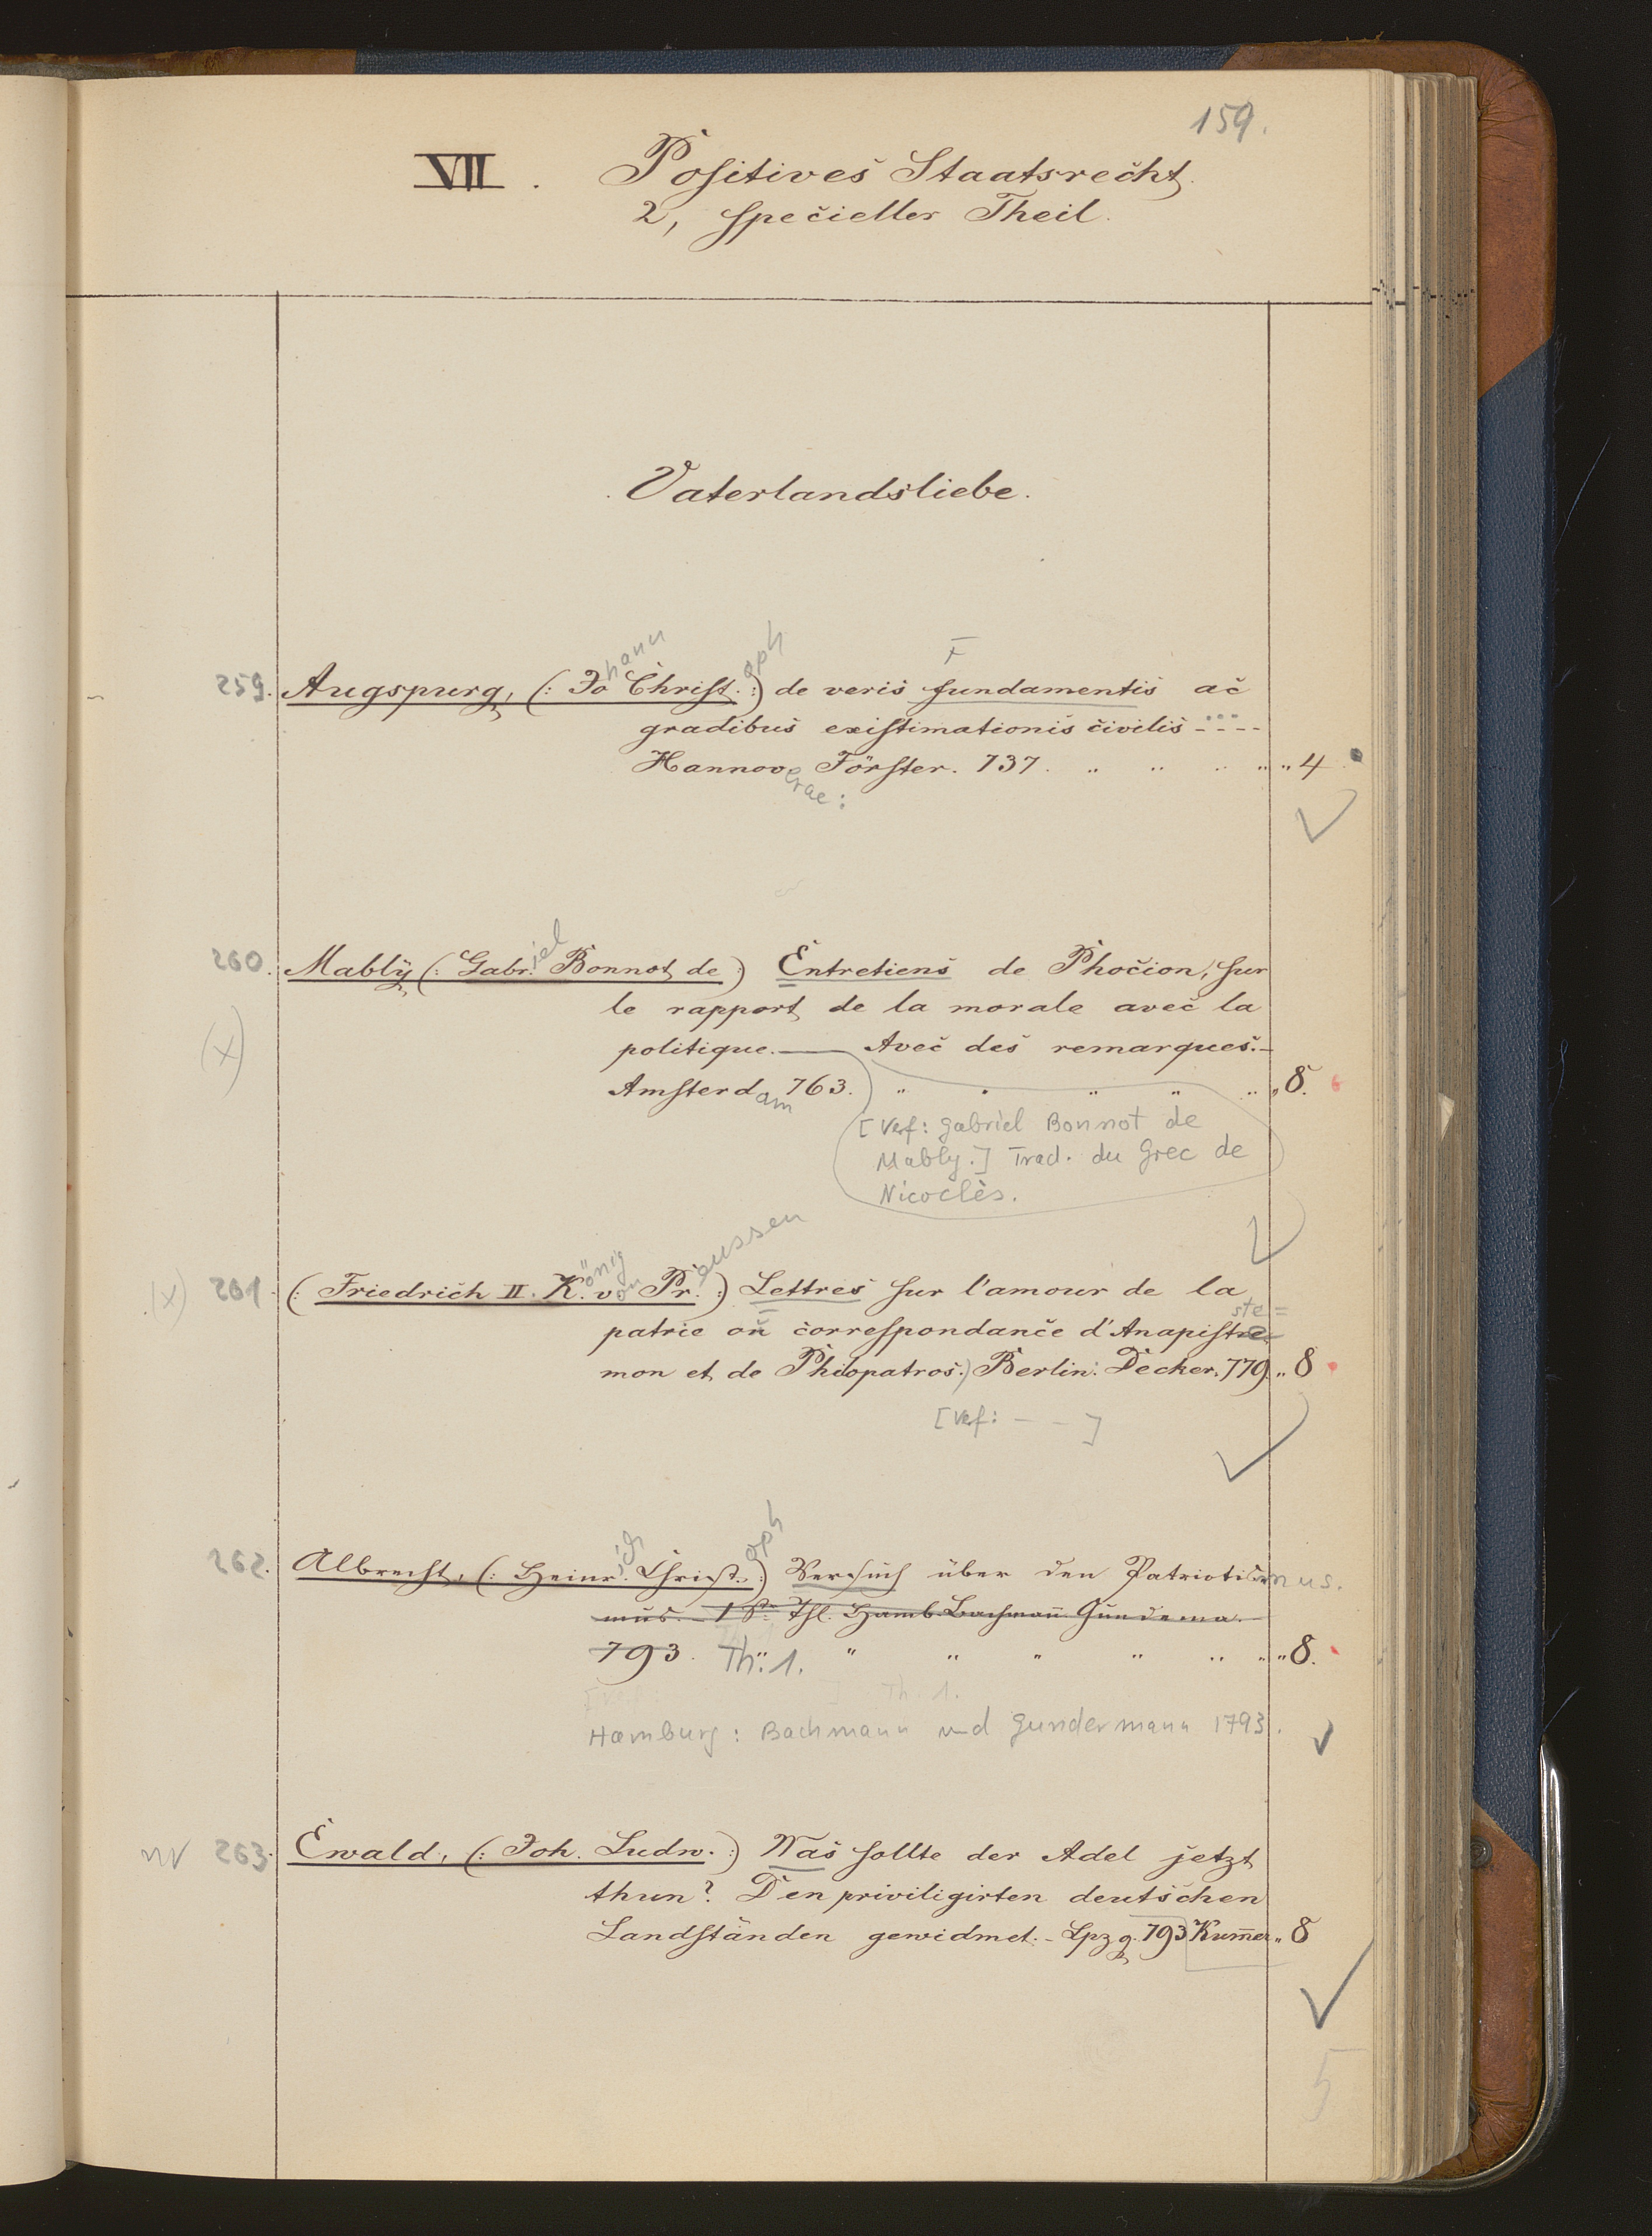 159.
VII. Positives Staatsrecht.
2, specieller Theil.
Vaterlandsliebe.
259. Augspurg, (: Johann Christoph :) de veris fundamentis ac
F
gradibus existimationis civilis - - - -
Hannoverae: Förster. 737. " " " " " 4
260. Mably (: Gabr.iel Bonnot de :) Entretiens de Phocion, sur
le rapport de la morale avec la
(x)
politique. — Avec des remarques. -
Amsterdam 763. " " " " " " 8.
[Verf: Gabriel Bonnot de
Mably.] Trad. du Grec de
Nicoclès.
(x) 261. (: Friedrich II. König von Preussen :) Lettres sur l'amour de la
patrie ou correspondance d'Anapiste=
mon et de Philopatros.) Berlin: Decker. 779. " 8
[Verf: - - ]
262. Albrecht, (: Heinrich Christoph :) Versuch über den Patriotismus.
mus. - 1 St. Thl. Hamb. Bachmann Gundema.
793. Th. 1. " " " " " " " 8.
Th. 1.
Hamburg: Bachmann und Gundermann 1793.
nv 263. Ewald, (: Joh. Ludw. :) Was sollte der Adel jetzt
thun? Den priviligirten deutschen
Landständen gewidmet. - Lpzg. 793 Kum̅er. " 8
5